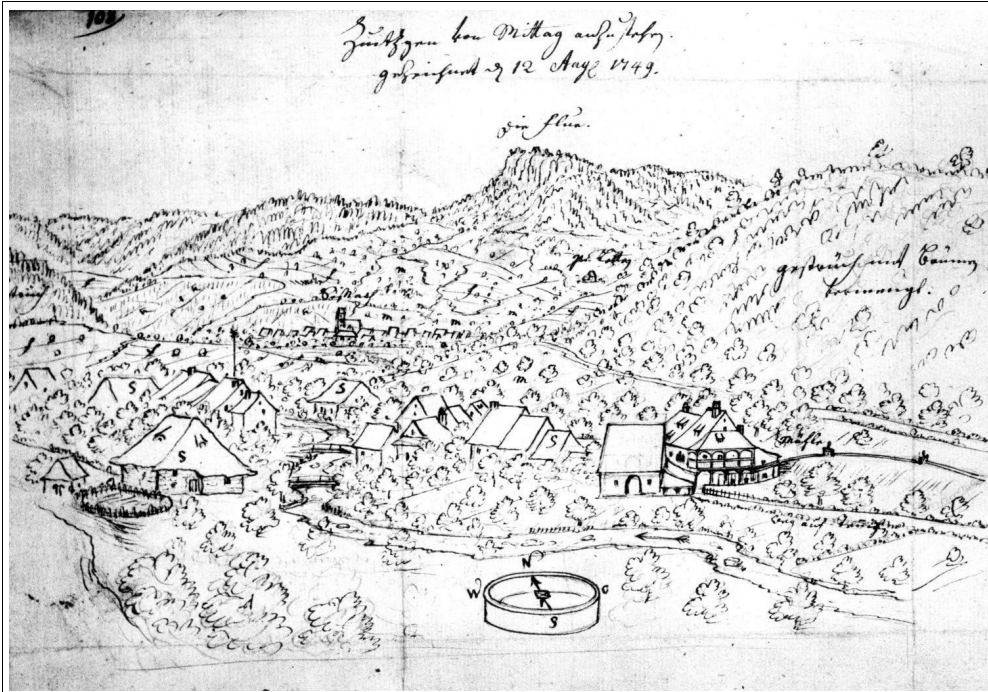 108
Zuntzgen von Mittag anzusehen.
gezeichnet d 12 Aug 1749.
die Flue.
gesträuch mit Bäumen
vermengt.
Sissach
S
S
S
S
Mühle
N
W
O
S